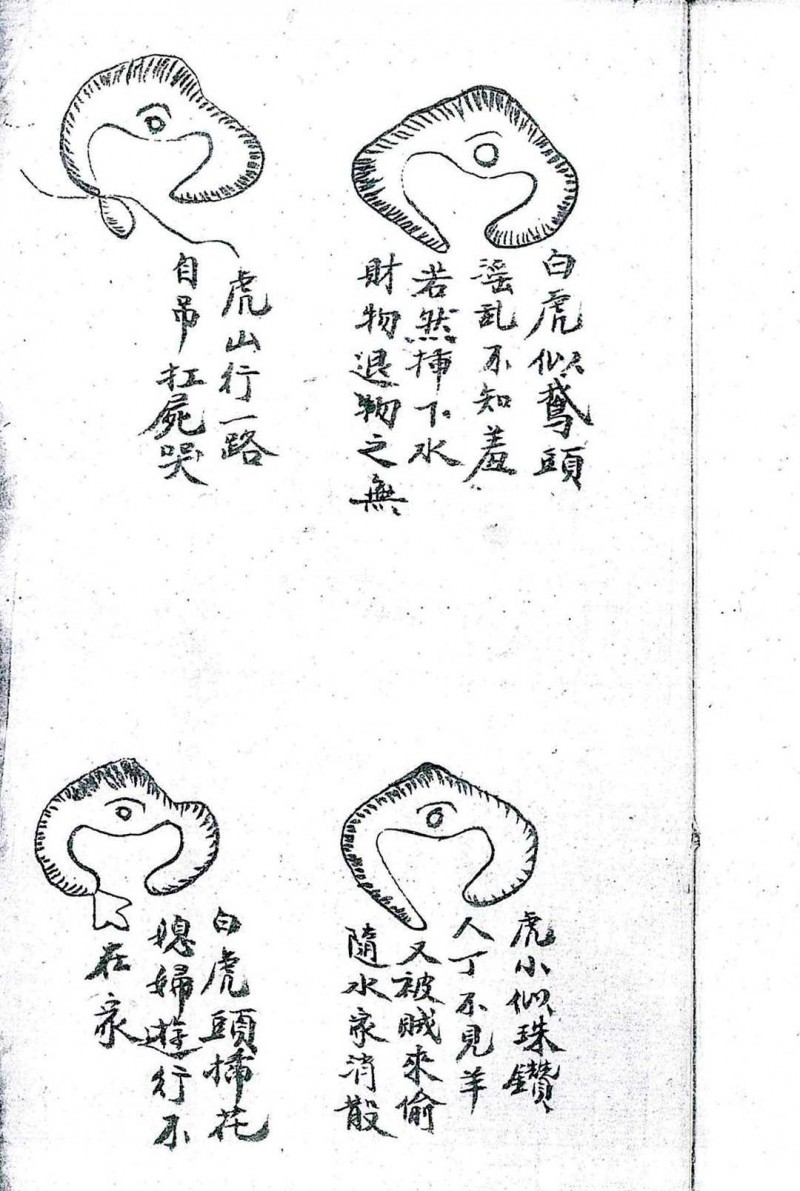 白虎似鵞頭
滛乱不知羞
若然揷下水
財物退物之無
虎山行一路
自吊扛屍哭
虎小似珠鑽
人丁不見羊
又被賊來偷
隨水家消散
白虎頭揷花
媳婦遊行不
在家